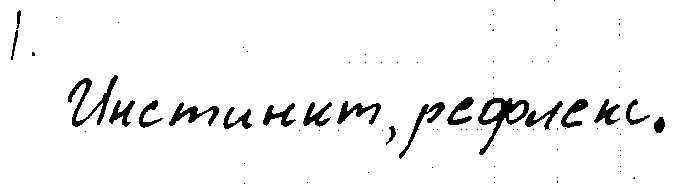 1.
Инстинкт, рефлекс.